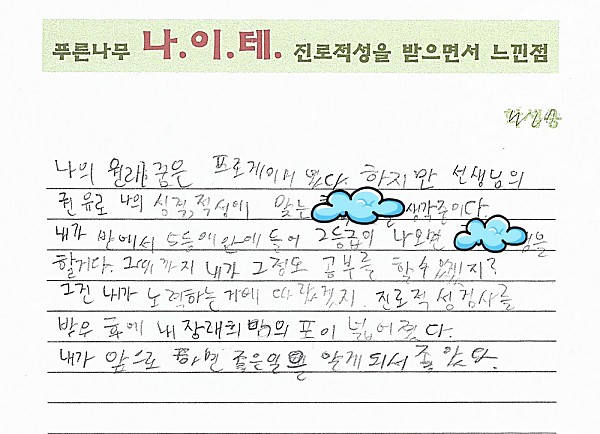 푸른나무 나.이.테. 진로적성을 받으면서 느낀점
학생용
나의 원래 꿈은 프로게이머 였다. 하지만 선생님의
권유로 나의 성격, 적성에 맞는 생각중이다.
내가 반에서 5등에 안에 들어 2등급이 나오면
할거다. 그때까지 내가 그정도 공부를 할수 있겠지?
그건 내가 노력하는거에 따라겠지. 진로적성검사를
받은 후에 내 장래희망의 포이 넓어졌다.
내가 앞으로 하면 좋은일을 알게 되서 좋았다.